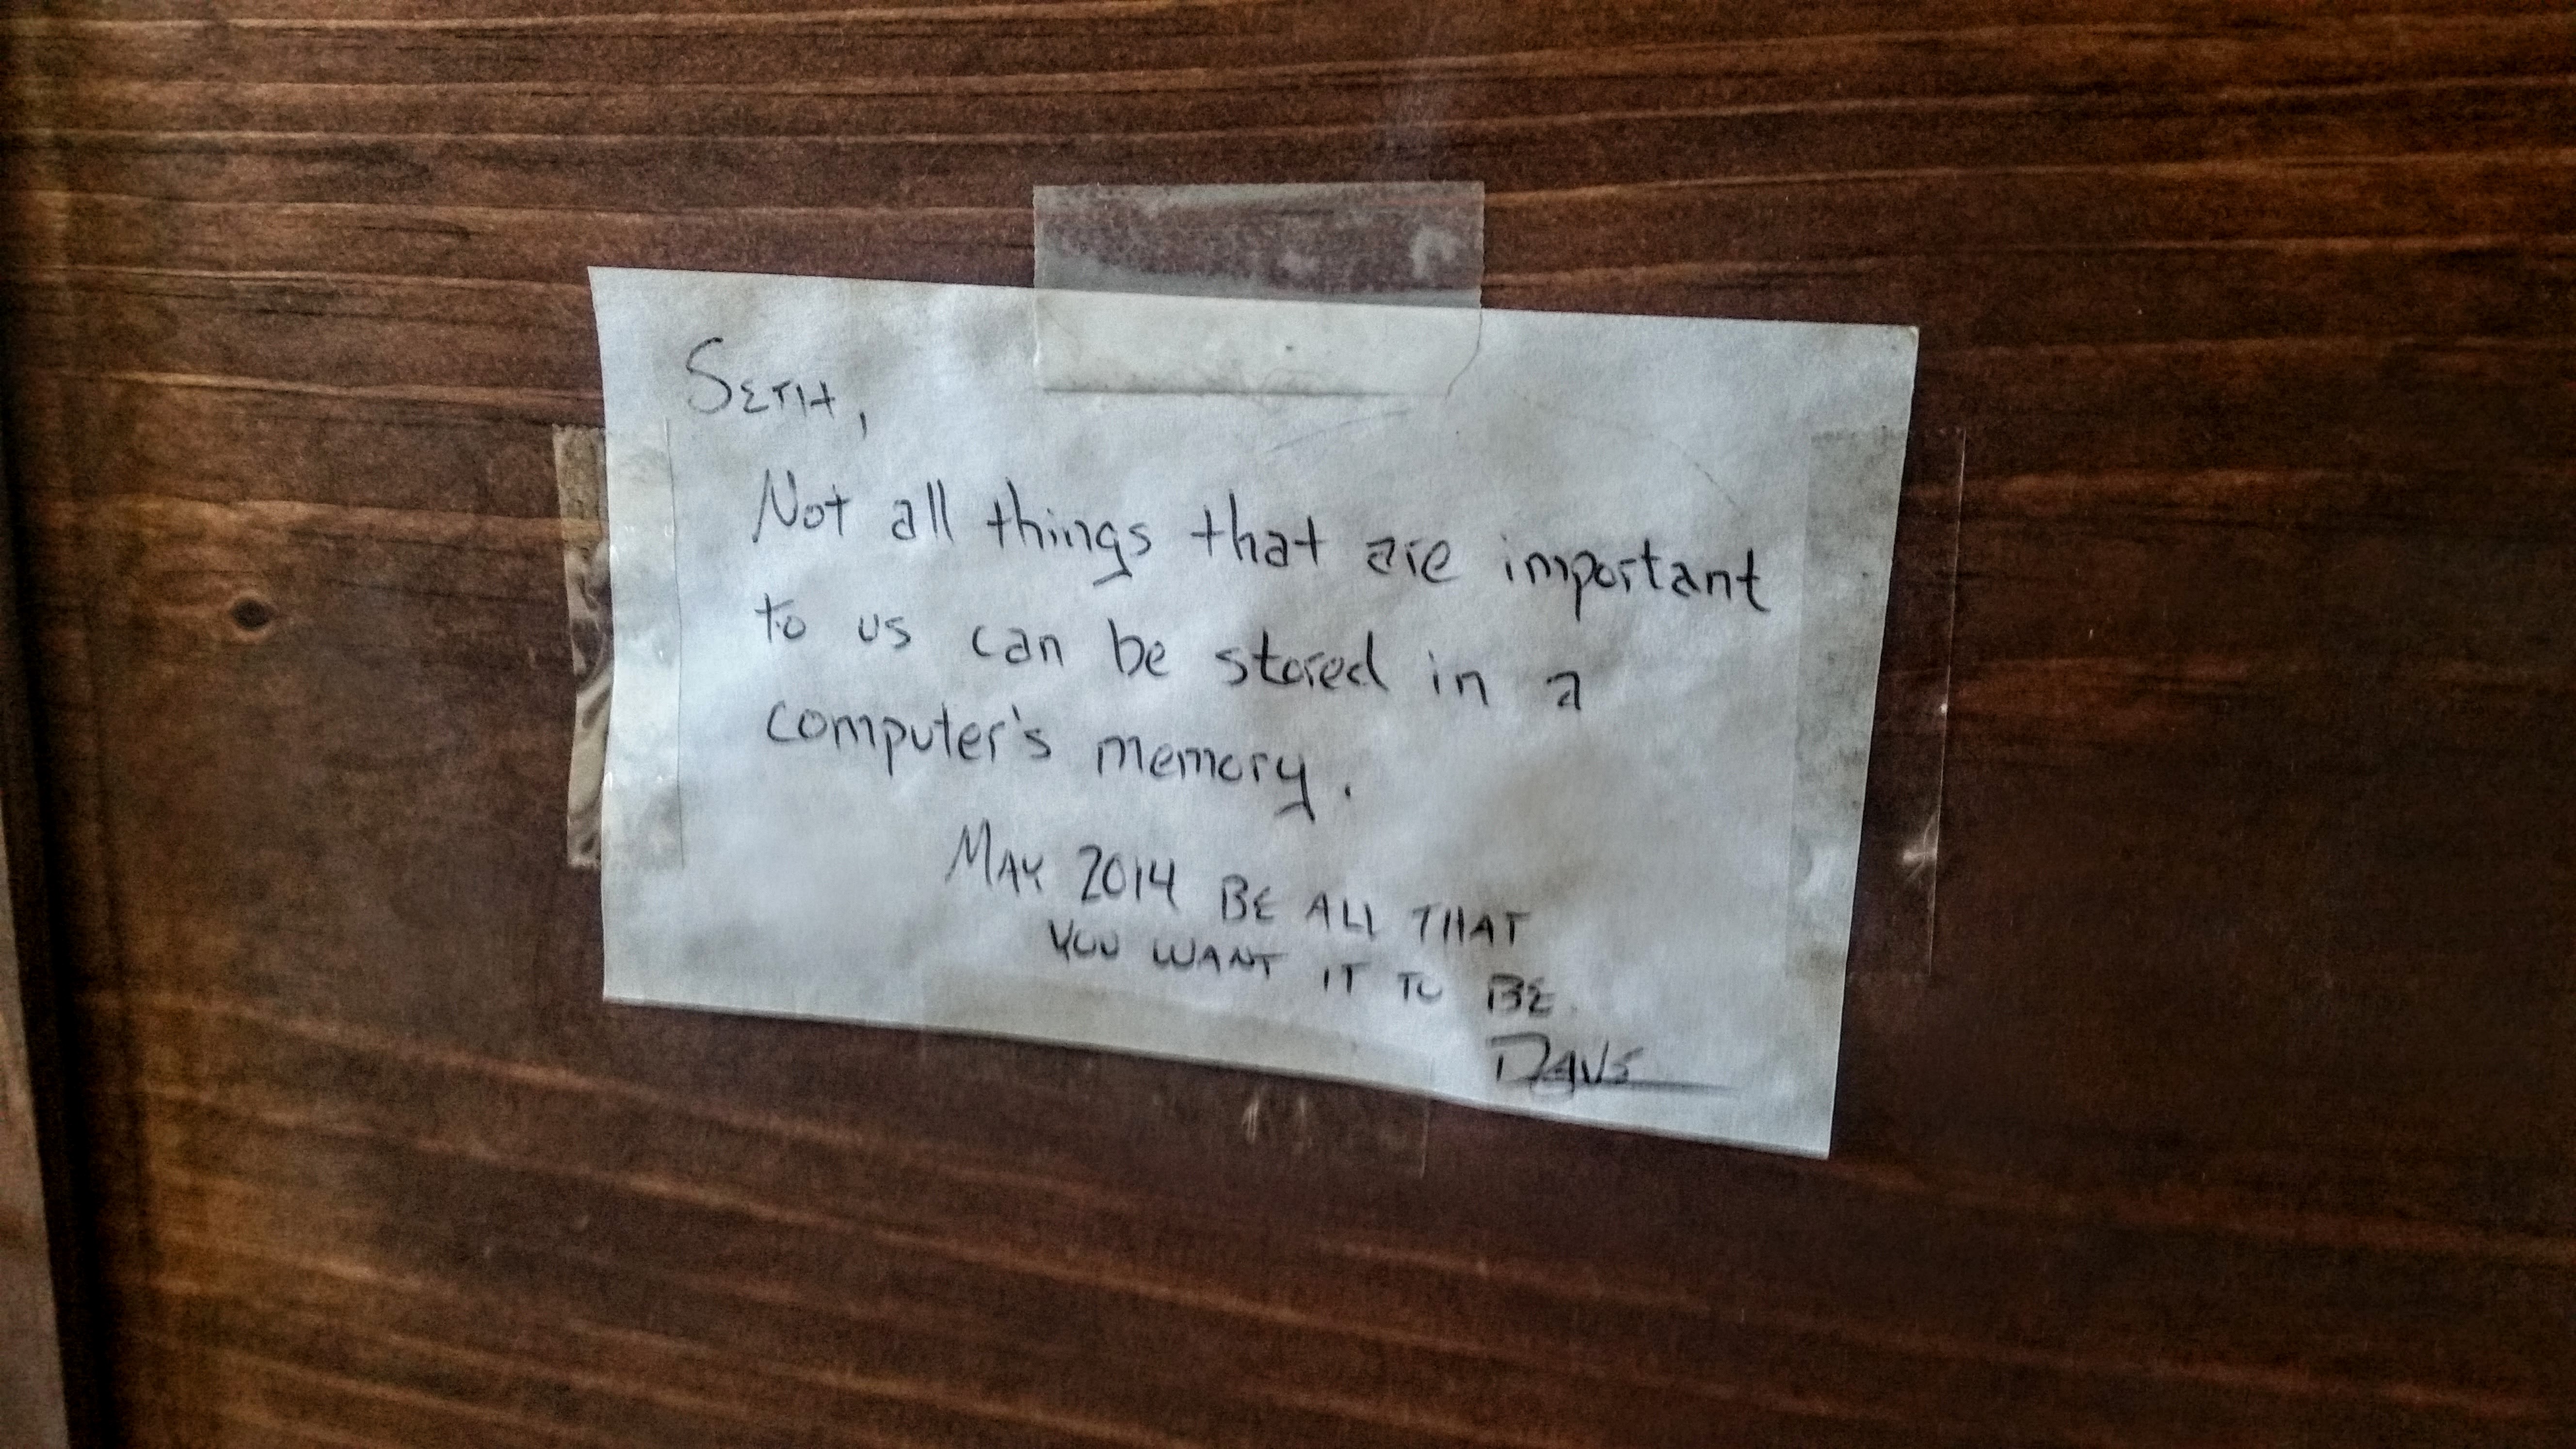 SETH,
Not all things that are important
to us can be stored in a
computer's memory.
MAY 2014 BE ALL THAT
YOU WANT IT TO BE.
DAVE